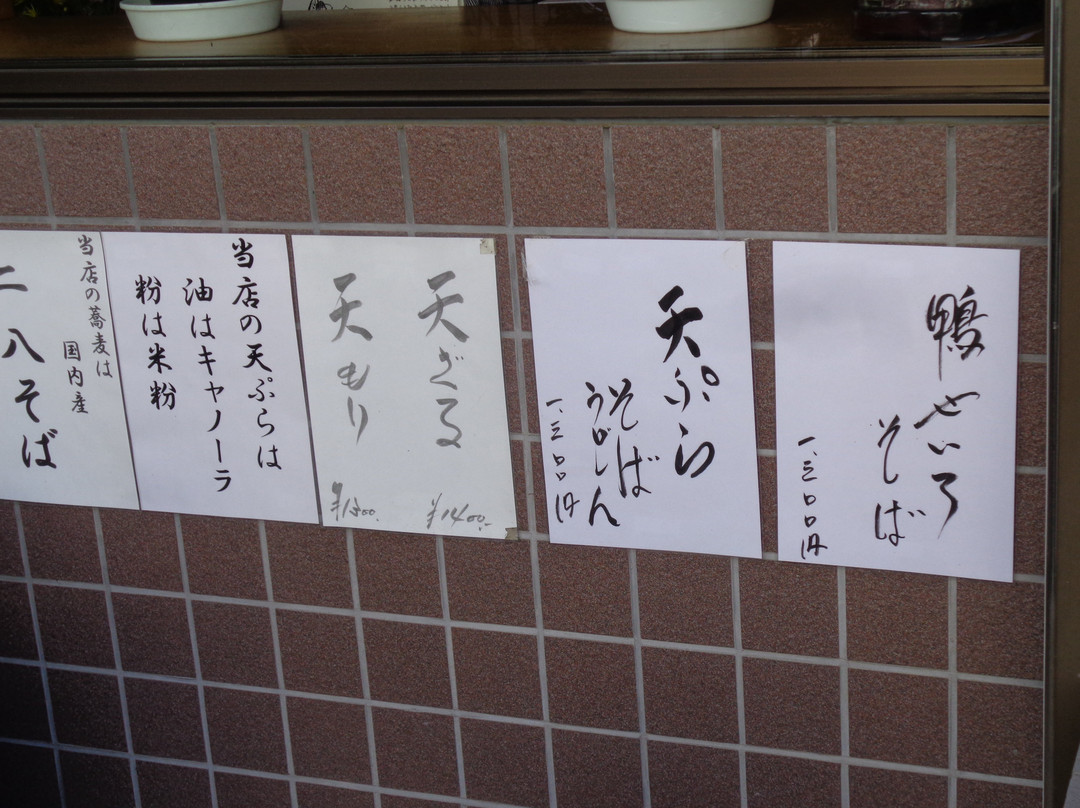 鴨せいろ
そば
一、三〇〇円
天ぷら
そば
うどん
一、三〇〇円
天ざる
¥1400.-
天もり
当店の天ぷらは
油はキャノーラ
粉は米粉
当店の蕎麦は
国内産
二八そば